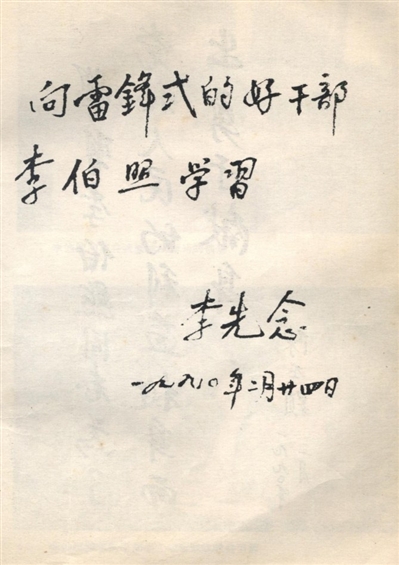 向雷锋式的好干部
李伯照学習
李先念
一九九〇年二月廿四日